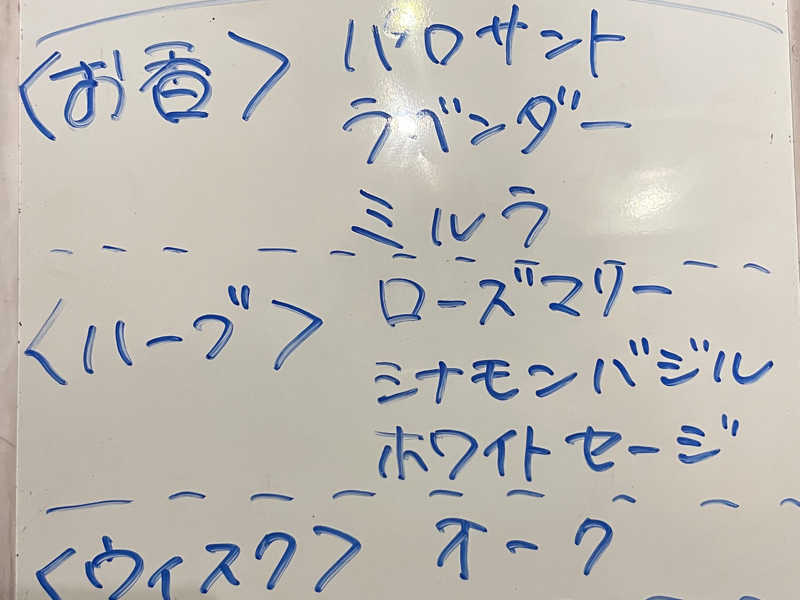 <お香> パロサント
ラベンダー
ミルラ
<ハーブ> ローズマリー
シナモンバジル
ホワイトセージ
<ウィスク> オーク